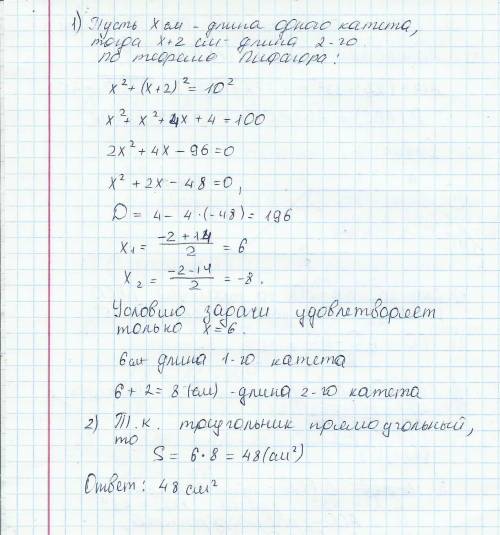 1) Пусть x см - длина одного катета,
тогда x+2 см - длина 2-го
По теореме Пифагора:
x² + (x+2)² = 10²
x² + x² + 4x + 4 = 100
2x² + 4x - 96 = 0
x² + 2x - 48 = 0,
D = 4 - 4·(-48) = 196
x₁ = (-2 + 14)/2 = 6
x₂ = (-2 - 14)/2 = -8.
Условию задачи удовлетворяет
только x = 6.
6 см длина 1-го катета
6 + 2 = 8 (см) - длина 2-го катета
2) Т.к. треугольник прямоугольный,
то
S = 6·8 = 48 (см²)
Ответ: 48 см²